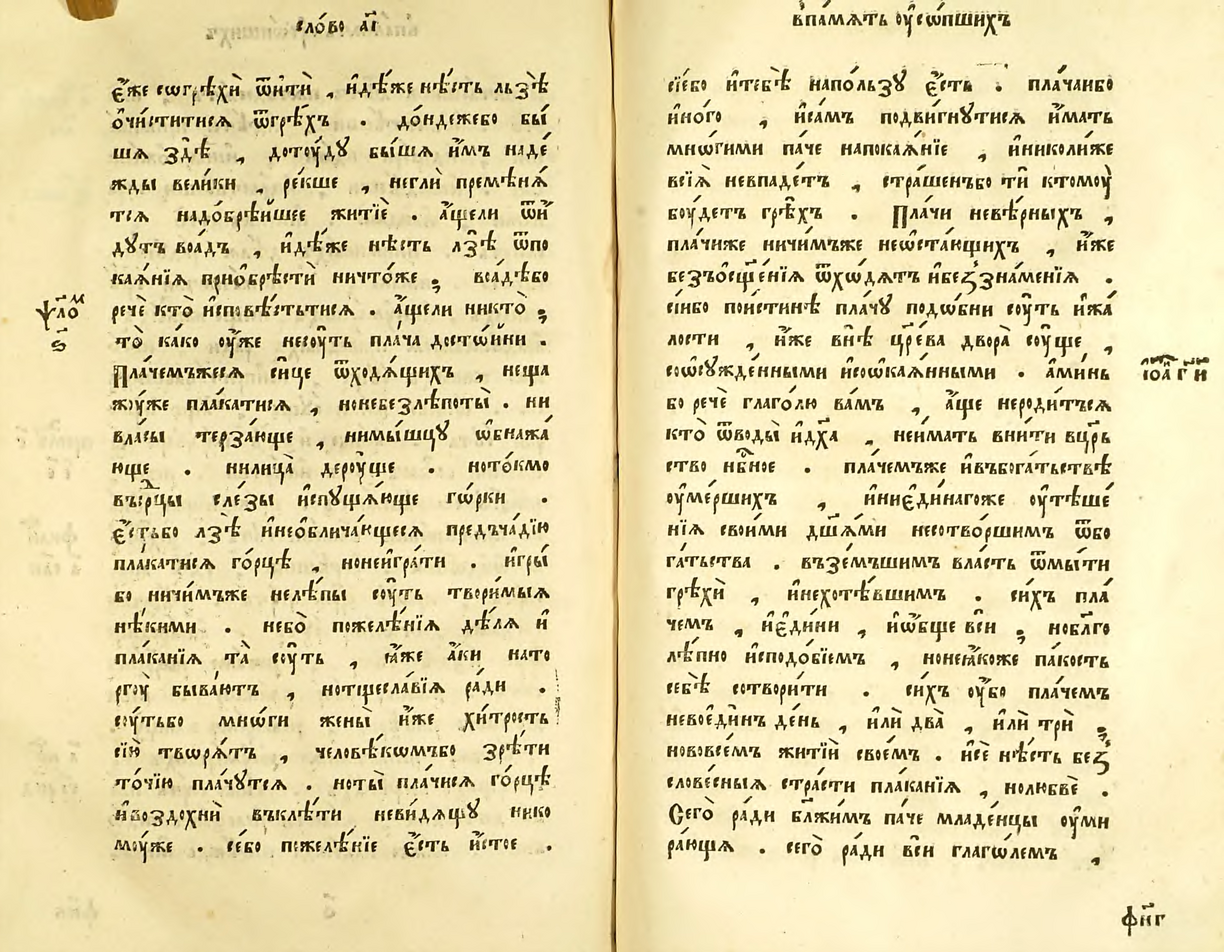 сло́во а҃і
є҆́же сωгрѣхѝ ѿитѝ , и҆дѣ́же нѣ́сть льзѣ̀
ѻ҆чи́ститисѧ ѿгрѣ́хъ . до́ндежебо бы́
шѧ здѣ̀ , дотоу́дꙋ бы́шѧ и҆̀мъ наде́
жды вели́ки , ре́кше , неглѝ премѣнѧ́
тсѧ надо́брѣйшее житїѐ . а҆́щели ѿи́
дꙋтъ воа́дъ , и҆дѣ́же нѣ́сть лзѣ̀ ѿпо
каѧ́нїѧ приѻ҆брѣстѝ ничто́же ; вса́дѣбо
речѐ кто̀ и҆сповѣ́стьтисѧ . а҆́щели никто̀ ;
то̀ ка́ко оу҆́же несоу́ть пла́ча досто́йни .
Пла́чемъжесѧ си́це ѿходѧ́щихъ , неща
жꙋ́же пла́катисѧ , нонебезлѣ́поты . ни
вла́сы терза́юще , нимы́шцꙋ ѡ҆бнажа́
юще . нилица̀ дероу́ще . ното́кмо
въсрцы сле́зы и҆спꙋща́юще го́рки .
є҆́стьбо лзѣ̀ и҆необлича́ющесѧ предъча́дїю
пла́катисѧ го́рцѣ , нонеигра́ти . и҆гры̀
бо ничи́мъже нелѣ́пы соу́ть твори́мыѧ
нѣ́кими . небо̀ пожелѣ́нїѧ дѣ́лѧ и҆
пла́канїѧ та̀ соу́ть , ꙗ҆́же а҆́ки нато
ргоу̀ быва́ютъ , нотщесла́вїѧ ра́ди .
соу́тьбо мнѡ́ги жены̀ и҆́же хи́трость
сїю̀ твѡрѧ́тъ , человѣ́кѡмъбо зрѣ́ти
то́чїю пла́чꙋтсѧ . ноты̀ пла́чисѧ го́рцѣ
и҆воздохнѝ въклѣ́ти неви́дѧщꙋ нико
моу́же . се́бо пожелѣ́нїе є҆́сть и҆́стое .
ѱало́м
ѕ҃
впа́мѧть оу҆со́пшихъ
сїе́бо и҆тебѣ̀ напо́льзꙋ є҆́сть . пла́чаибо
и҆но́го , и҆са́мъ подви́гнꙋтисѧ и҆́мать
мнѡ́гими па́че напокаѧ́нїе , и҆николи́же
всїѧ̀ невпаде́тъ , стра́шенъбо тѝ ктомоу̀
боу́детъ грѣ́хъ . Пла́чи невѣ́рныхъ ,
пла́чиже ничи́мъже неѡста́ющихъ , и҆́же
безъѻсщ҃е́нїѧ ѿхѡ́дѧтъ и҆безъзна́менїѧ .
сі́ибо пои́стинѣ пла́чꙋ подо́бни соу́ть и҆жа́
лости , и҆́же внѣ̀ цр҃е́ва двора̀ соу́ще ,
соѡсꙋжде́нными и҆соѡкаѧ́нными . а҆ми́нь
бо речѐ глаго́лю ва́мъ , а҆́ще нероди́тьсѧ
кто̀ ѿводы̀ и҆дх҃а , неи́мать вни́ти вцр҃ь
ство нб҃ное . пла́чемъже и҆въбога́тьствѣ
оу҆ме́ршихъ , и҆ниеди́нагоже оу҆тѣше́
нїѧ свои́ми дш҃ѧ́ми несотво́ршимъ ѿбо
га́тьства . възе́мъшимъ вла́сть ѿмы́ти
грѣхѝ , и҆нехотѣ́вшимъ . си́хъ пла́
чемъ , и҆еди́ни , и҆ѡ́бще всѝ ; нобл҃го
лѣ́пно и҆сподо́бїемъ , нонеꙗ҆́коже па́кость
себѣ̀ сотвори́ти . си́хъ оу҆́бо пла́чемъ
невоеди́нъ де́нь , и҆лѝ два̀ , и҆лѝ трѝ ;
нововсе́мъ житїѝ свое́мъ . и҆сѐ нѣ́сть без
слове́сныѧ стра́сти пла́канїѧ , нолюбвѐ .
Сего̀ ра́ди бл҃жи́мъ па́че младе́нцы оу҆ми
ра́ющѧ . сего̀ ра́ди всѝ глаго́лемъ ,
іѡа́ г҃ и҃
фн҃г